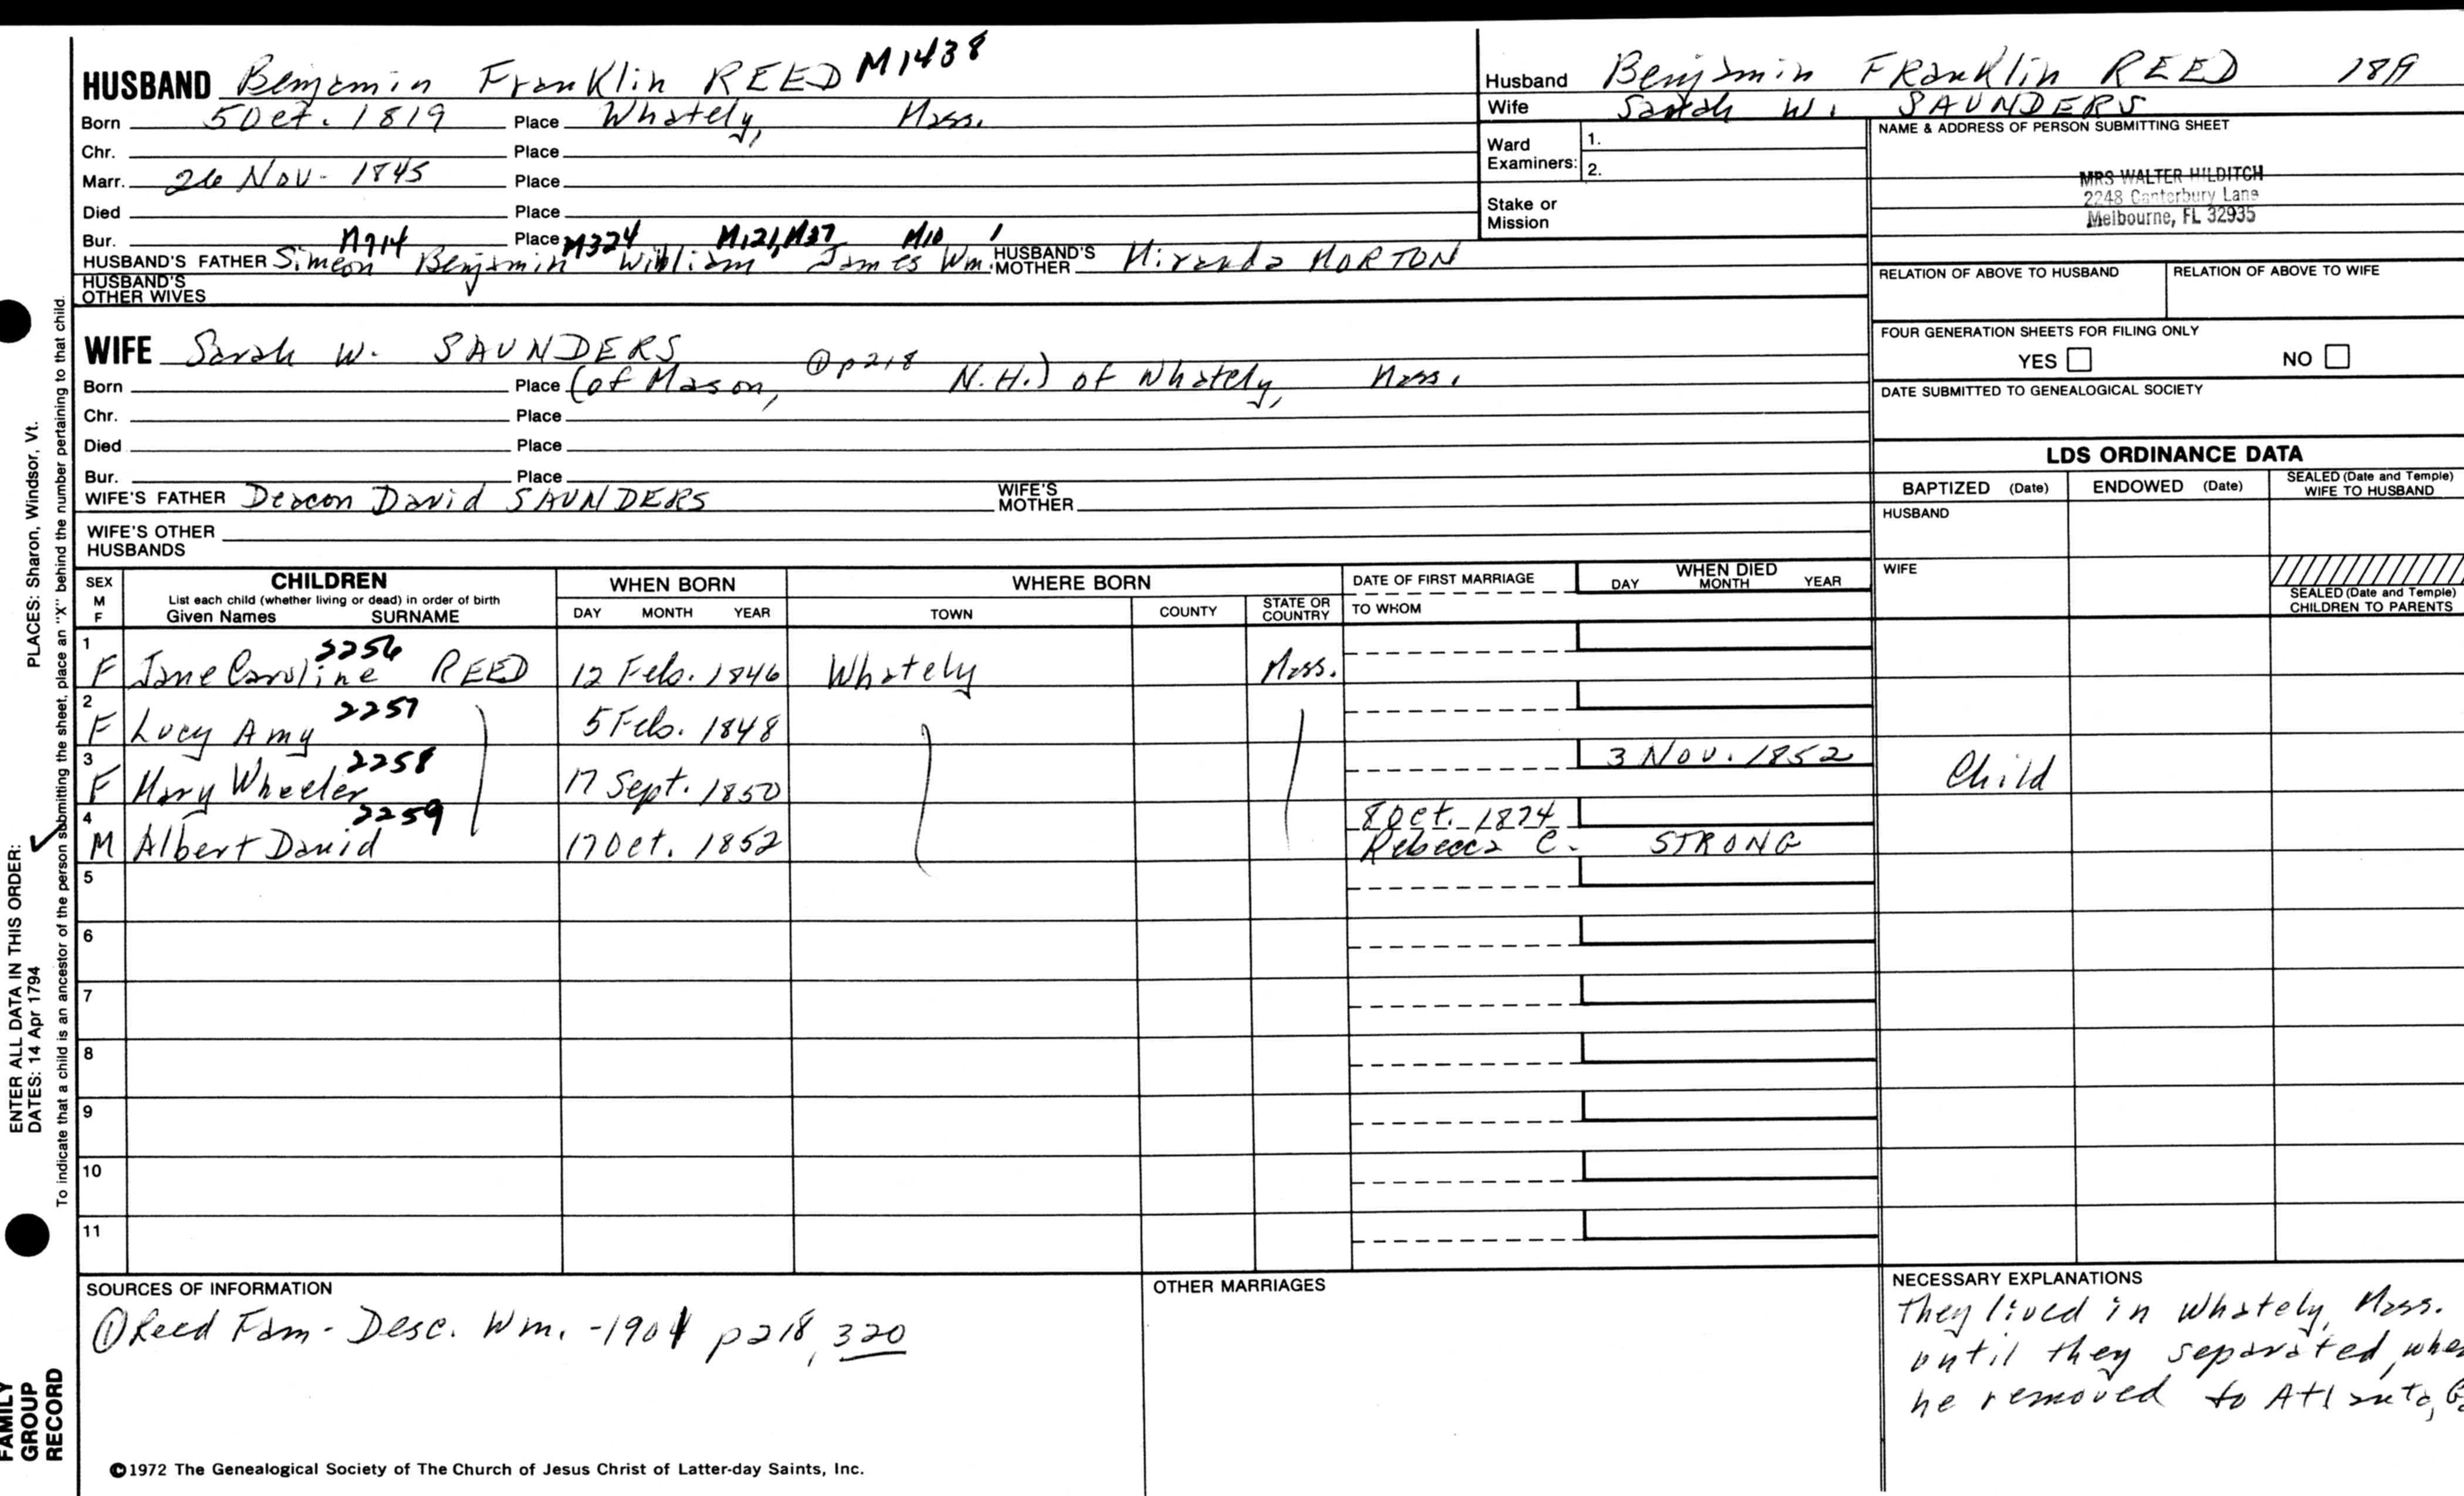 HUSBAND Benjamin Franklin REED M1438
Born 5 Oct. 1819 Place Whately, Mass.
Chr. Place
Marr. 26 Nov- 1845 Place
Died Place
Bur. Place
M714 M324 M121, M37 M10 1
HUSBAND'S FATHER Simeon Benjamin William James Wm. HUSBAND'S MOTHER Miranda MORTON
HUSBAND'S OTHER WIVES
WIFE Sarah W. SAUNDERS
Born Place (of Mason, ① p218 N.H.) of Whately, Mass.
Chr. Place
Died Place
Bur. Place
WIFE'S FATHER Deacon David SAUNDERS WIFE'S MOTHER
WIFE'S OTHER HUSBANDS
Husband Benjamin Franklin REED 1819
Wife Sarah W. SAUNDERS
Ward Examiners: 1.
2.
Stake or Mission
NAME & ADDRESS OF PERSON SUBMITTING SHEET
MRS WALTER HILDITCH
2248 Canterbury Lane
Melbourne, FL 32935
RELATION OF ABOVE TO HUSBAND RELATION OF ABOVE TO WIFE
FOUR GENERATION SHEETS FOR FILING ONLY
YES NO
DATE SUBMITTED TO GENEALOGICAL SOCIETY
LDS ORDINANCE DATA
BAPTIZED (Date) ENDOWED (Date) SEALED (Date and Temple) WIFE TO HUSBAND
HUSBAND
WIFE
SEALED (Date and Temple) CHILDREN TO PARENTS
SEX M F
CHILDREN
List each child (whether living or dead) in order of birth
Given Names SURNAME
WHEN BORN
DAY MONTH YEAR
WHERE BORN
TOWN COUNTY STATE OR COUNTRY
DATE OF FIRST MARRIAGE
TO WHOM
WHEN DIED
DAY MONTH YEAR
1 F Jane Caroline 2256 REED 12 Feb. 1846 Whately Mass.
2 F Lucy Amy 2257 5 Feb. 1848
3 F Mary Wheeler 2258 17 Sept. 1850 3 Nov. 1852 Child
4 M Albert David 2259 17 Oct. 1852 8 Oct. 1874 Rebecca C. STRONG
5
6
7
8
9
10
11
SOURCES OF INFORMATION
① Reed Fam- Desc. Wm. -1901 p218, 320
OTHER MARRIAGES
NECESSARY EXPLANATIONS
They lived in Whately, Mass.
until they separated,
he removed to Atlanta,
©1972 The Genealogical Society of The Church of Jesus Christ of Latter-day Saints, Inc.
ENTER ALL DATA IN THIS ORDER:
DATES: 14 Apr 1794 PLACES: Sharon, Windsor, Vt.
To indicate that a child is an ancestor of the person submitting the sheet, place an "X" behind the number pertaining to that child.
FAMILY
GROUP
RECORD